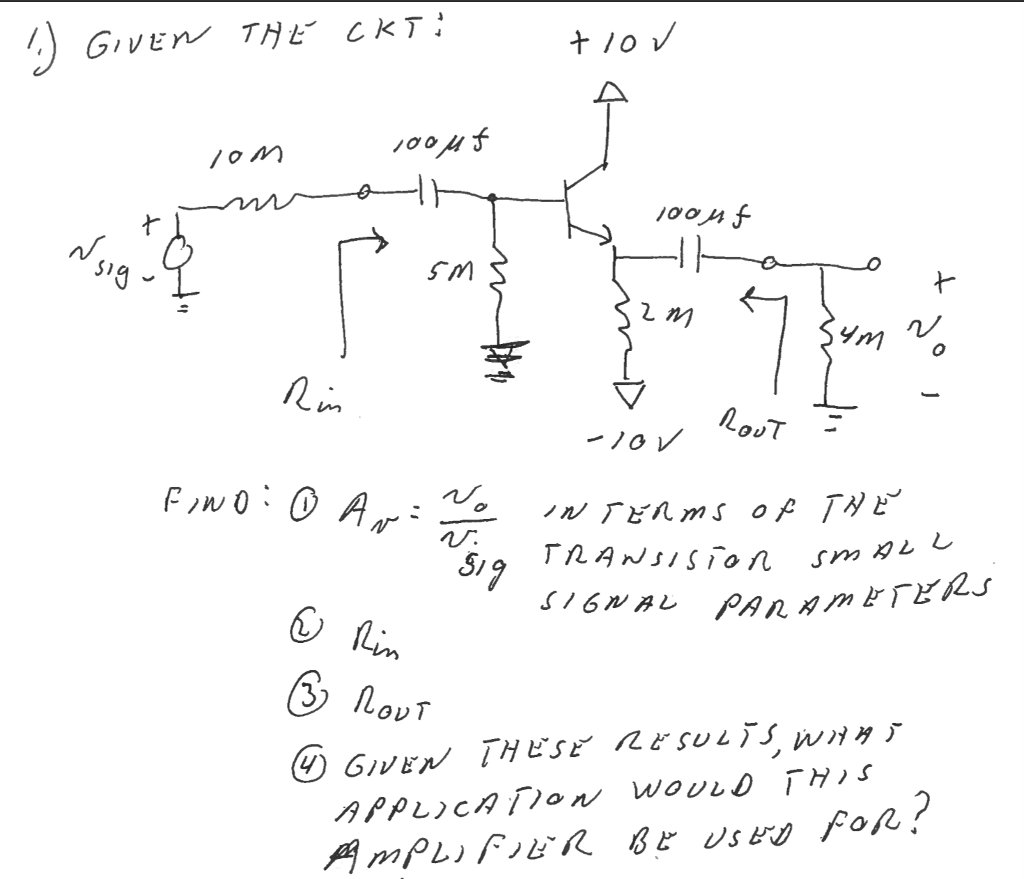 1.) GIVEN THE CKT:
+10V
10M
100µf
100µf
+
v sig
-
5M
2M
4M
+
vo
-
Rin
-10V
ROUT
FIND: ① Av = vo / vsig IN TERMS OF THE
TRANSISTOR SMALL
SIGNAL PARAMETERS
② Rin
③ ROUT
④ GIVEN THESE RESULTS, WHAT
APPLICATION WOULD THIS
AMPLIFIER BE USED FOR?